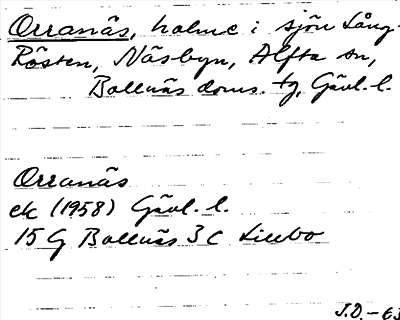 Orranäs, holme i sjön Lång-
Rösten, Näsbyn, Alfta sn,
Bollnäs doms. tg, Gävl. l.
Orranäs
ek (1958) Gävl. l.
15 G Bollnäs 3 c Lillbo
J.D. -63